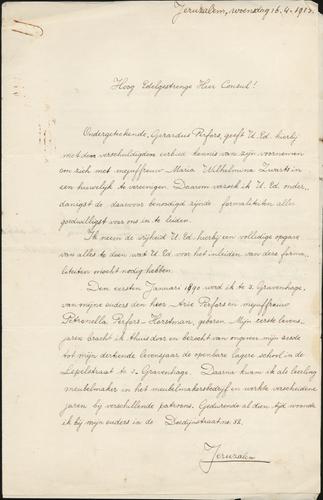 Jeruzalem, woensdag 16.4.1913.
Hoog Edelgestrenge Heer Consul!
Ondergetekende, Gerardus Perfors, geeft U. Ed. hierbij
met den verschuldigden eerbied kennis van zijn voornemen
om zich met mejuffrouw Maria Wilhelmina Zwarts in
een huwelijk te verenigen. Daarom verzoek ik U. Ed. onder-
danigst de daarvoor benodigd zijnde formaliteiten aller
goedwilligst voor ons in te leiden.
Ik neem de vrijheid U. Ed. hierbij een volledige opgave
van alles te doen wat U. Ed voor het inleiden van deze forma-
liteiten mocht nodig hebben.
Den eersten Januari 1890 werd ik te 's Gravenhage
van mijne ouders den heer Arie Perfors en mejuffrouw
Petronella Perfors-Horstman, geboren. Mijn eerste levens-
jaren bracht ik thuis door en bezocht van ongeveer mijn zesde
tot mijn dertiende levensjaar de openbare lagere school in de
Lepelstraat te 's-Gravenhage. Daarna kwam ik als leerling
meubelmaker in het meubelmakersbedrijf en werkte verscheidene
jaren bij verschillende patroons. Gedurende al dien tijd woonde
ik bij mijn ouders in de Doedijnstraat no. 52.
Jeruzalem